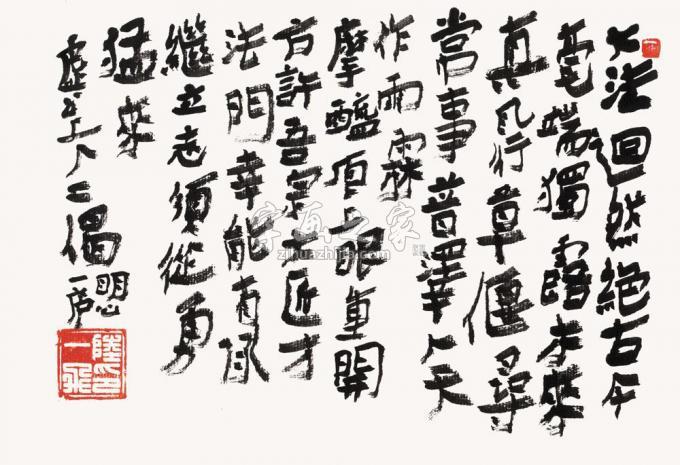 法迴然絕古今
毫端獨露本來
真風行草偃尋
常事普澤人天
作雨霖
摩醯頂上眼重開
方許吾宗大匠才
法門幸能有
繼立志須從勇
猛來
虛雲上人二偈
一飛
陸印一飛
字画之家
zihuazhijia.com